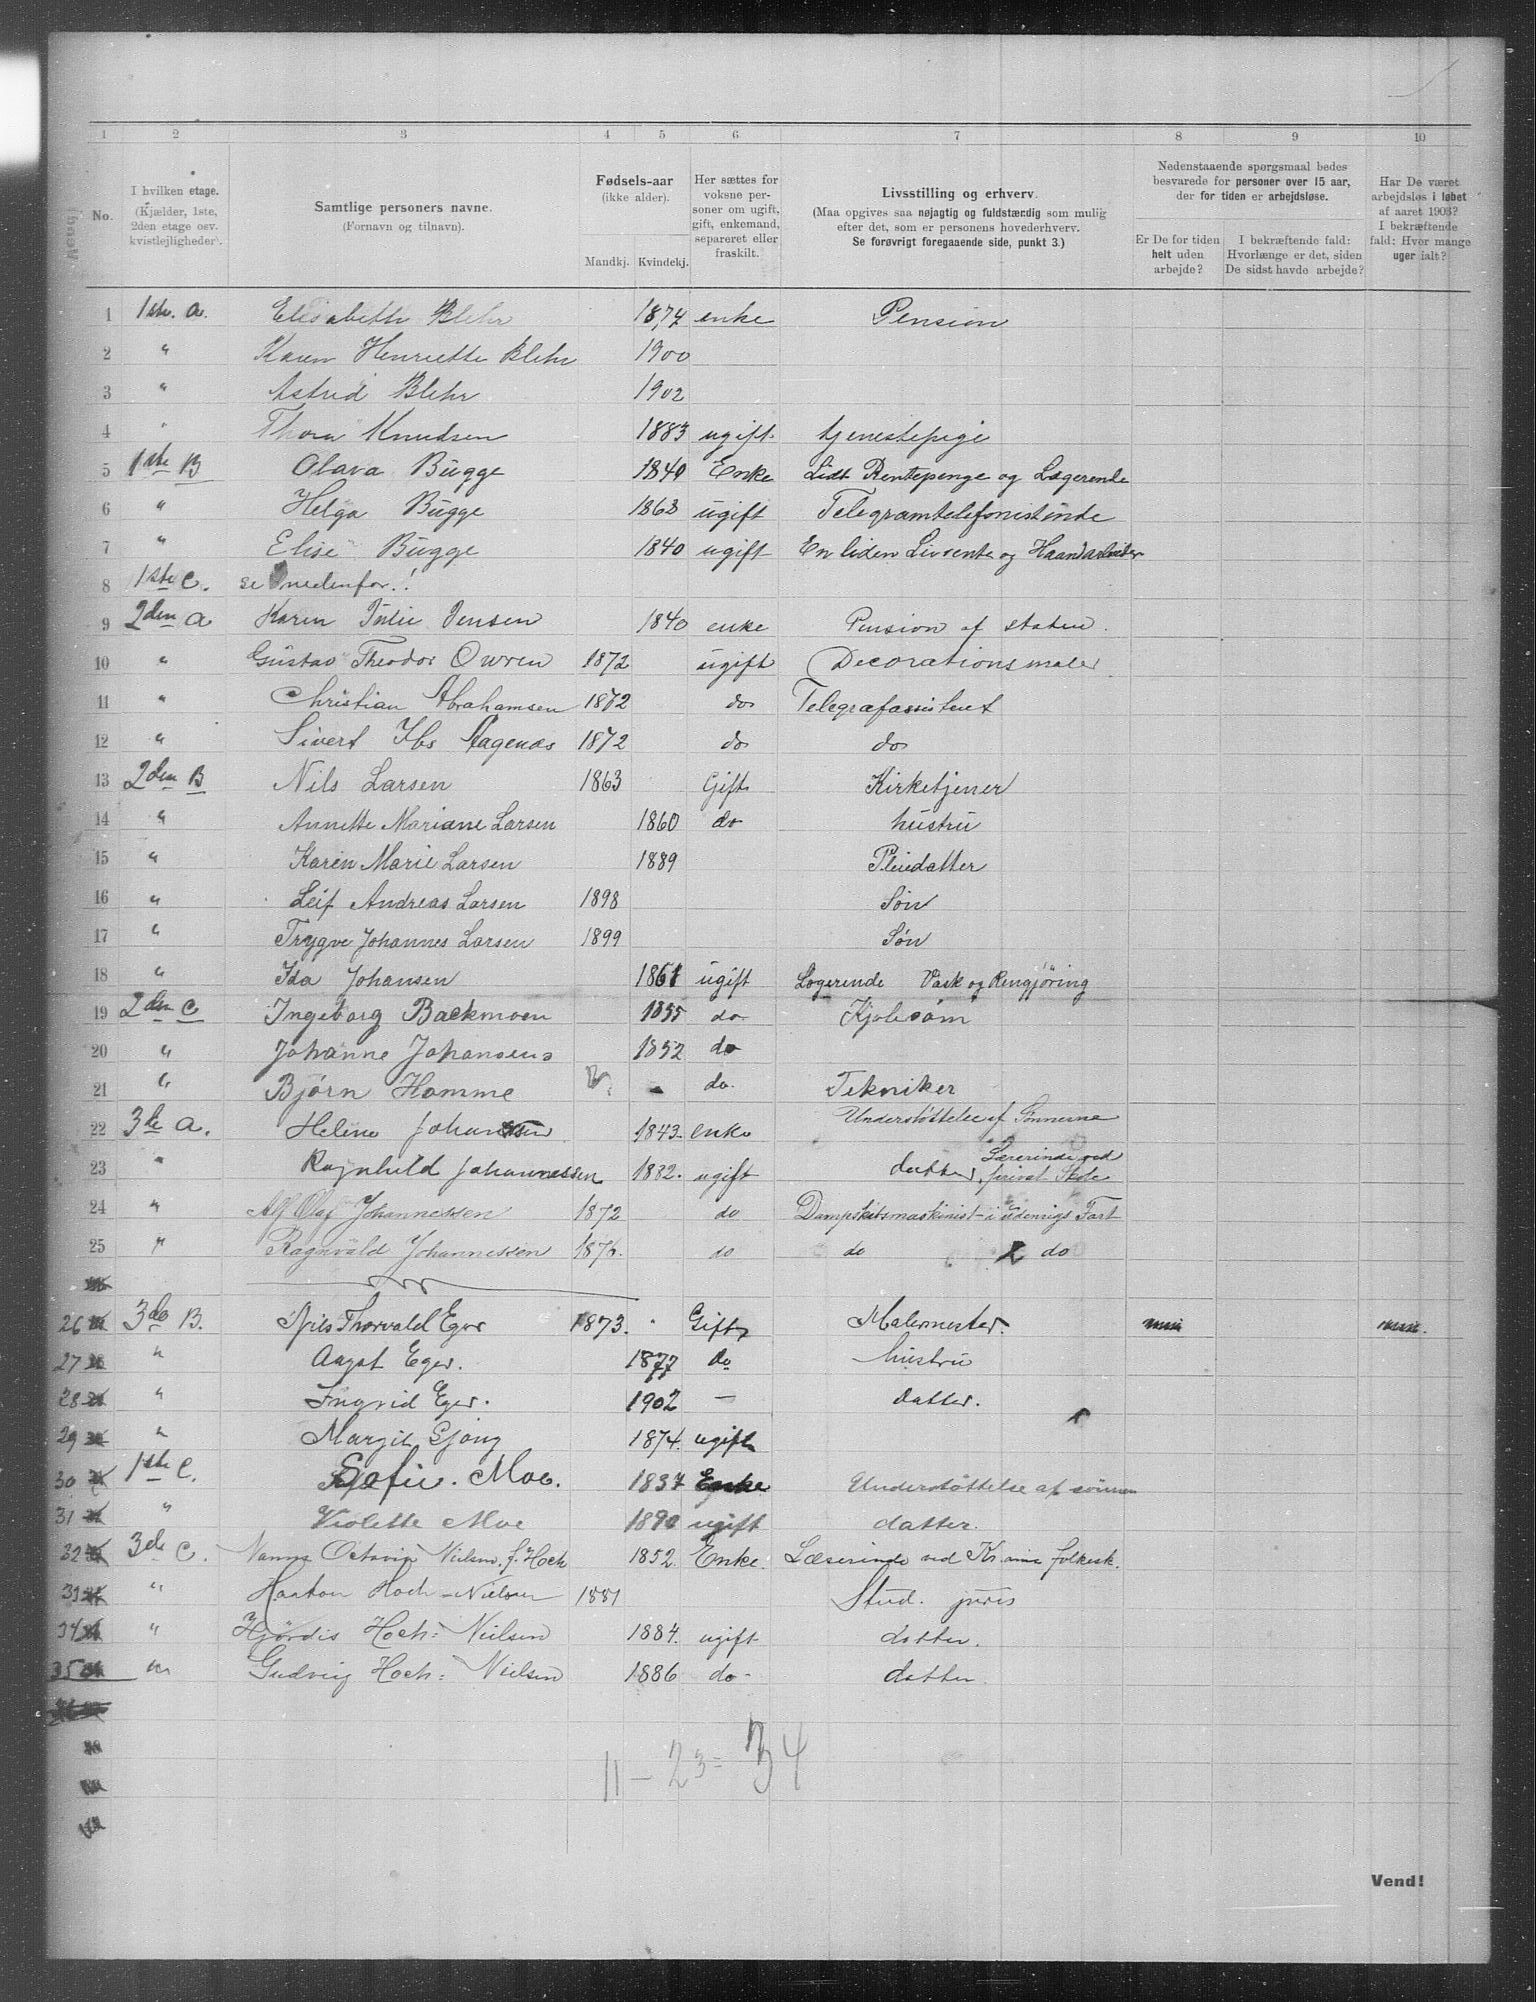 1 2 3 4 5 6 7 8 9 10
No. I hvilken etage. (Kjælder, 1ste, 2den etage osv. kvistlejligheder). Samtlige personers navne. (Fornavn og tilnavn). Fødsels-aar (ikke alder). Mandkj. Kvindekj. Her sættes for voksne personer om ugift, gift, enkemand, separeret eller fraskilt. Livsstilling og erhverv. (Maa opgives saa nøjagtig og fuldstærdig som mulig efter det, som er personens hovederhverv. Se forøvrigt foregaaende side, punkt 3.) Nedenstaaende spørgsmaal bedes besvarede for personer over 15 aar, der for tiden er arbejdsløse. Er De for tiden helt uden arbejde? I bekræftende fald: Hvorlænge er det, siden De sidst havde arbejde? Har De været arbejdsløs i løbet af aaret 1903? I bekræftende fald: Hvor mange uger ialt?
1 1ste. a. Elisabeth Blehr 1874 enke Pension
2 " Karen Henriette Blehr 1900
3 " Astrid Blehr 1902
4 " Thora Knudsen 1883 ugift tjenestepige
5 1ste B Olava Bugge 1840 Enke Lidt Rentepenge og Logerende
6 " Helga Bugge 1863 ugift Telegramtelefonistinde
7 " Elise Bugge 1840 ugift En liden Livrente og Haandarbeider
8 1ste C. se nedenfor.!
9 2den a Karen Julie Jensen 1840 enke Pension af staten.
10 " Gustav Theodor Owren 1872 ugift Decorationsmaler
11 " Christian Abrahamsen 1872 do Telegrafassistent
12 " Sivert Ibs Aagenæs 1872 do do
13 2den B Nils Larsen 1863 Gift Kirketjener
14 " Annette Mariane Larsen 1860 do hustru
15 " Karen Marie Larsen 1889 Pleiedatter
16 " Leif Andreas Larsen 1898 Søn
17 " Trygve Johannes Larsen 1899 Søn
18 " Ida Johansen 1861 ugift Logerende Vask og Rengjøring
19 2den C Ingeborg Backmoen 1855 do Kjolesøm
20 " Johanne Johansens 1852 do
21 " Bjørn Hamme do. Tekniker
22 3de a. Helene Johansen 1843. enke Understøttelse af Sønnerne
23 " Ragnhild Johannessen 1882. ugift datter, Lærerinde ved privat Skole
24 " Alf Olaf Johannessen 1872 do Dampskibsmaskinist i udenrigs Fart
25 " Ragnvald Johannessen 1876. do do do
26 3de B. Nils Thorvald Eger 1873. Gift Malermester.
27 " Aagot Eger. 1877 do hustru
28 " Ingrid Eger. 1902 — datter.
29 " Margit Gjöng 1874. ugift
30 1ste C. Sofie. Moe. 1837 Enke Understøttelse af sønnen
31 " Violette Moe ugift datter.
32 3de C. Nanna Octavia Nielsen f. Hoch 1852. Enke. Læserinde ved Kr.ania folkesk.
33 " Haakon Hoch-Nielsen 1881 Stud. juris
34 " Hjørdis Hoch-Nielsen 1884. ugift datter.
35 " Gudveig Hoch-Nielsen 1886 do- datter.
11 - 23 = 34
Vend!